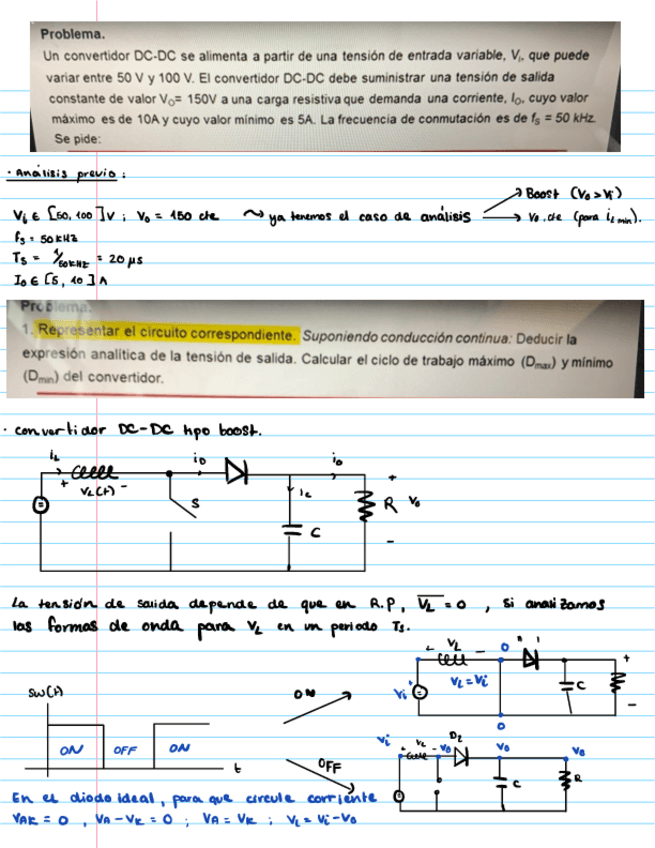 Problema.
Un convertidor DC-DC se alimenta a partir de una tensión de entrada variable, Vi, que puede
variar entre 50 V y 100 V. El convertidor DC-DC debe suministrar una tensión de salida
constante de valor VO= 150V a una carga resistiva que demanda una corriente, IO, cuyo valor
máximo es de 10A y cuyo valor mínimo es 5A. La frecuencia de conmutación es de fs = 50 kHz.
Se pide:
· Análisis previo:
Vi ∈ [50, 100] V ; Vo = 150 cte ~> ya tenemos el caso de análisis → Boost (Vo > Vi)
→ Vo.cte (para iL min).
fs = 50 kHz
Ts = 1/50kHz = 20 μs
Io ∈ [5, 10] A
Problema.
1. Representar el circuito correspondiente. Suponiendo conducción continua: Deducir la
expresión analítica de la tensión de salida. Calcular el ciclo de trabajo máximo (Dmax) y mínimo
(Dmin) del convertidor.
· convertidor DC-DC tipo boost.
iL
iD
io
+ VL(t) -
S
ic
C
+
R Vo
-
La tensión de salida depende de que en R.P, VL = 0 , si analizamos
las formas de onda para VL en un periodo Ts.
VL
+ -
0
VL = Vi
Vi
C
+
-
0
SW(t)
ON
ON OFF ON
t
OFF
Vi
+ VL - Vo
Vo
Vo
C
R
En el diodo ideal, para que circule corriente
VAK = 0 , VA - VK = 0 ; VA = VK ; VL = Vi - Vo